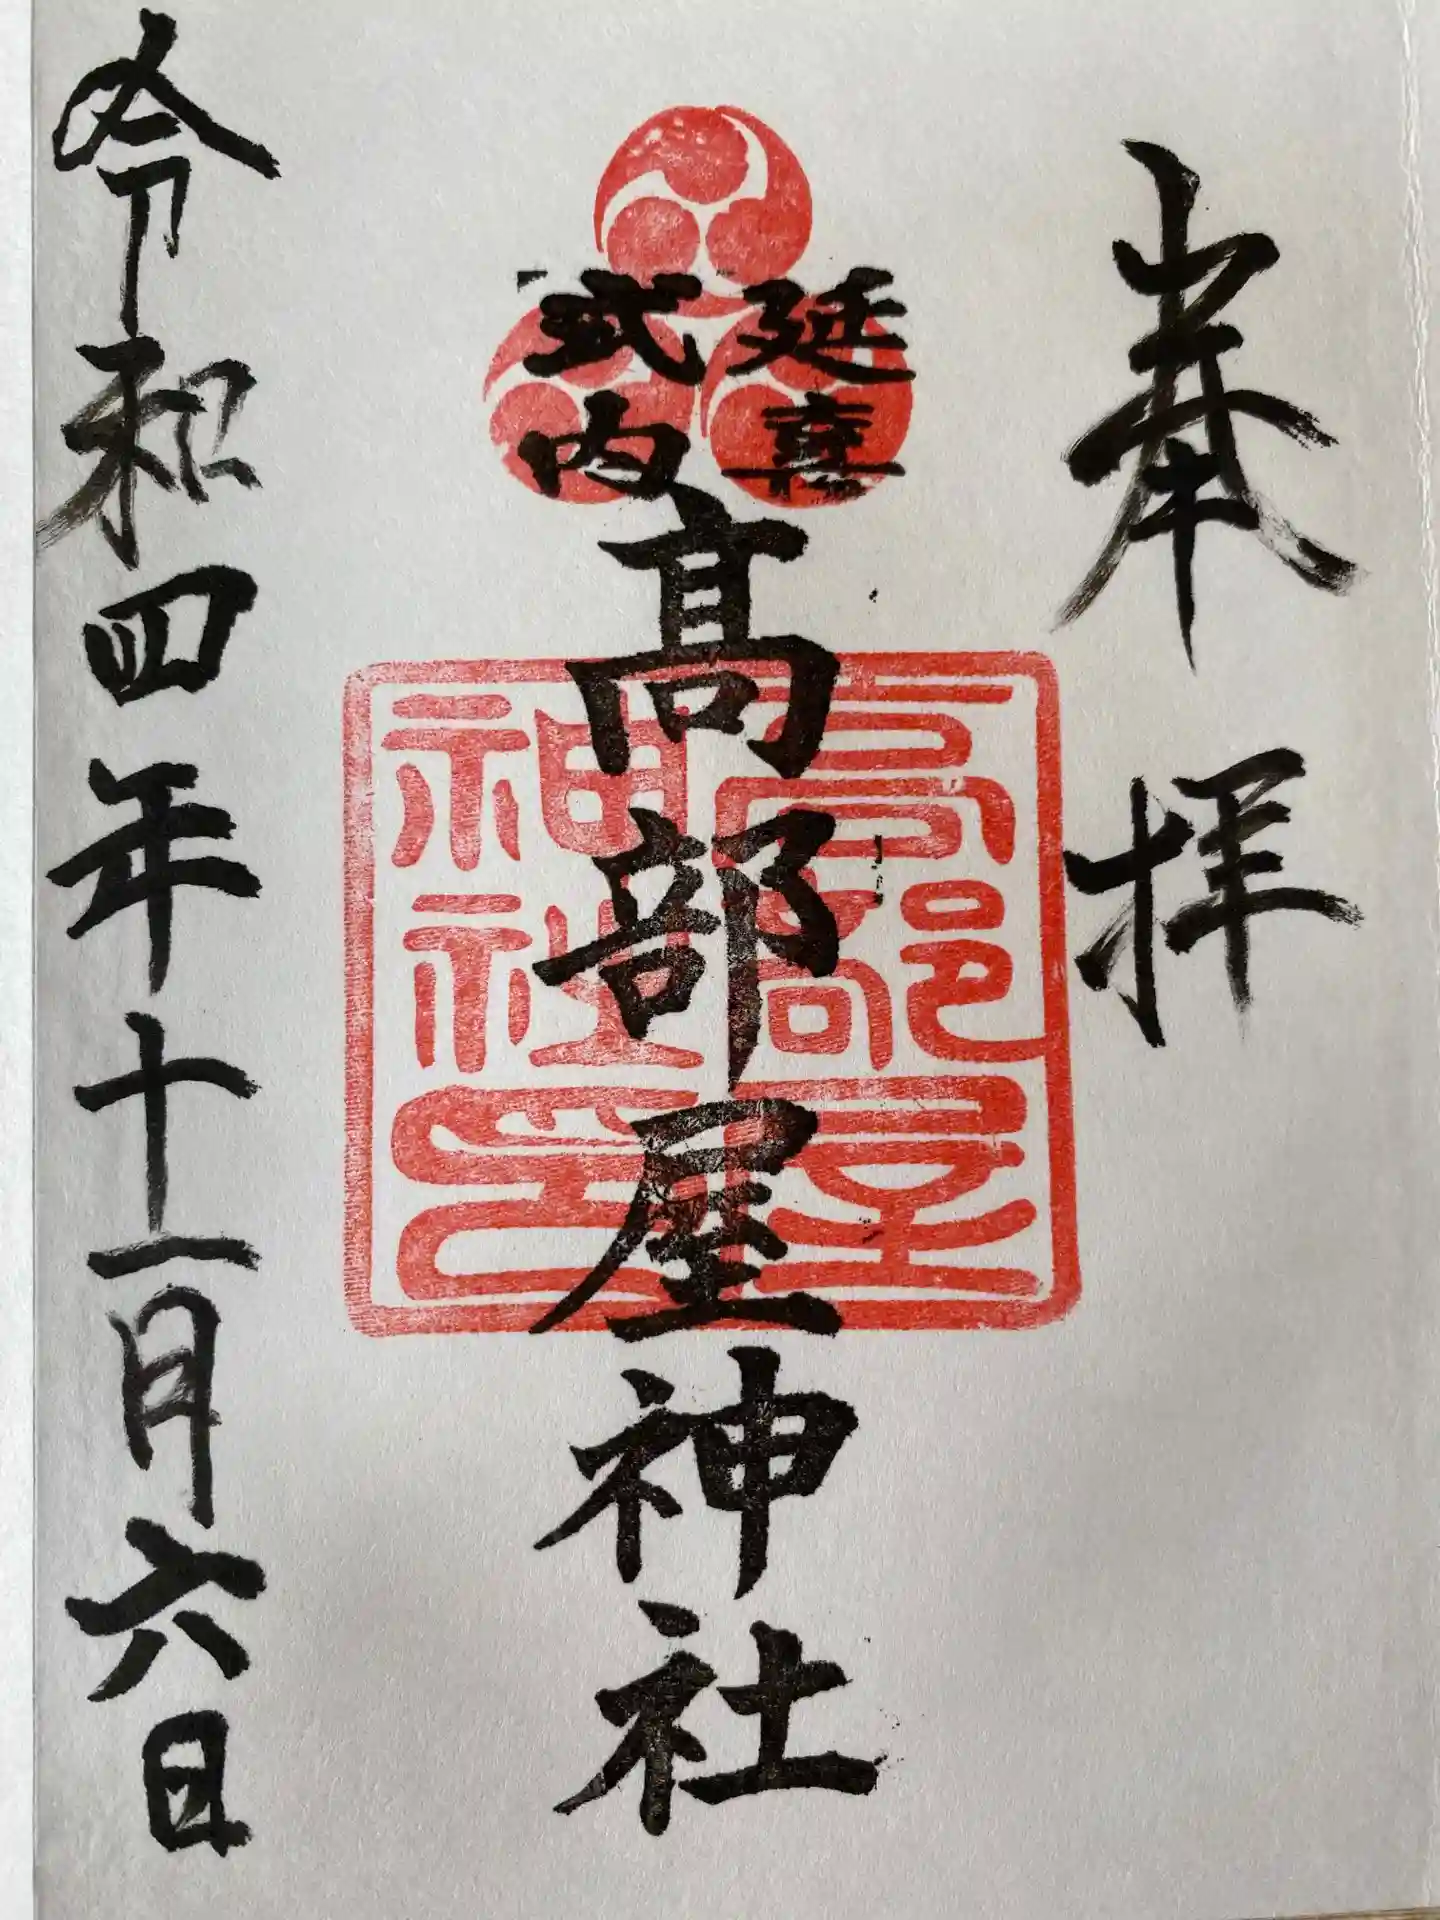 奉拝
延喜
式内
髙部屋神社
高部屋
神社印
令和四年十一月六日